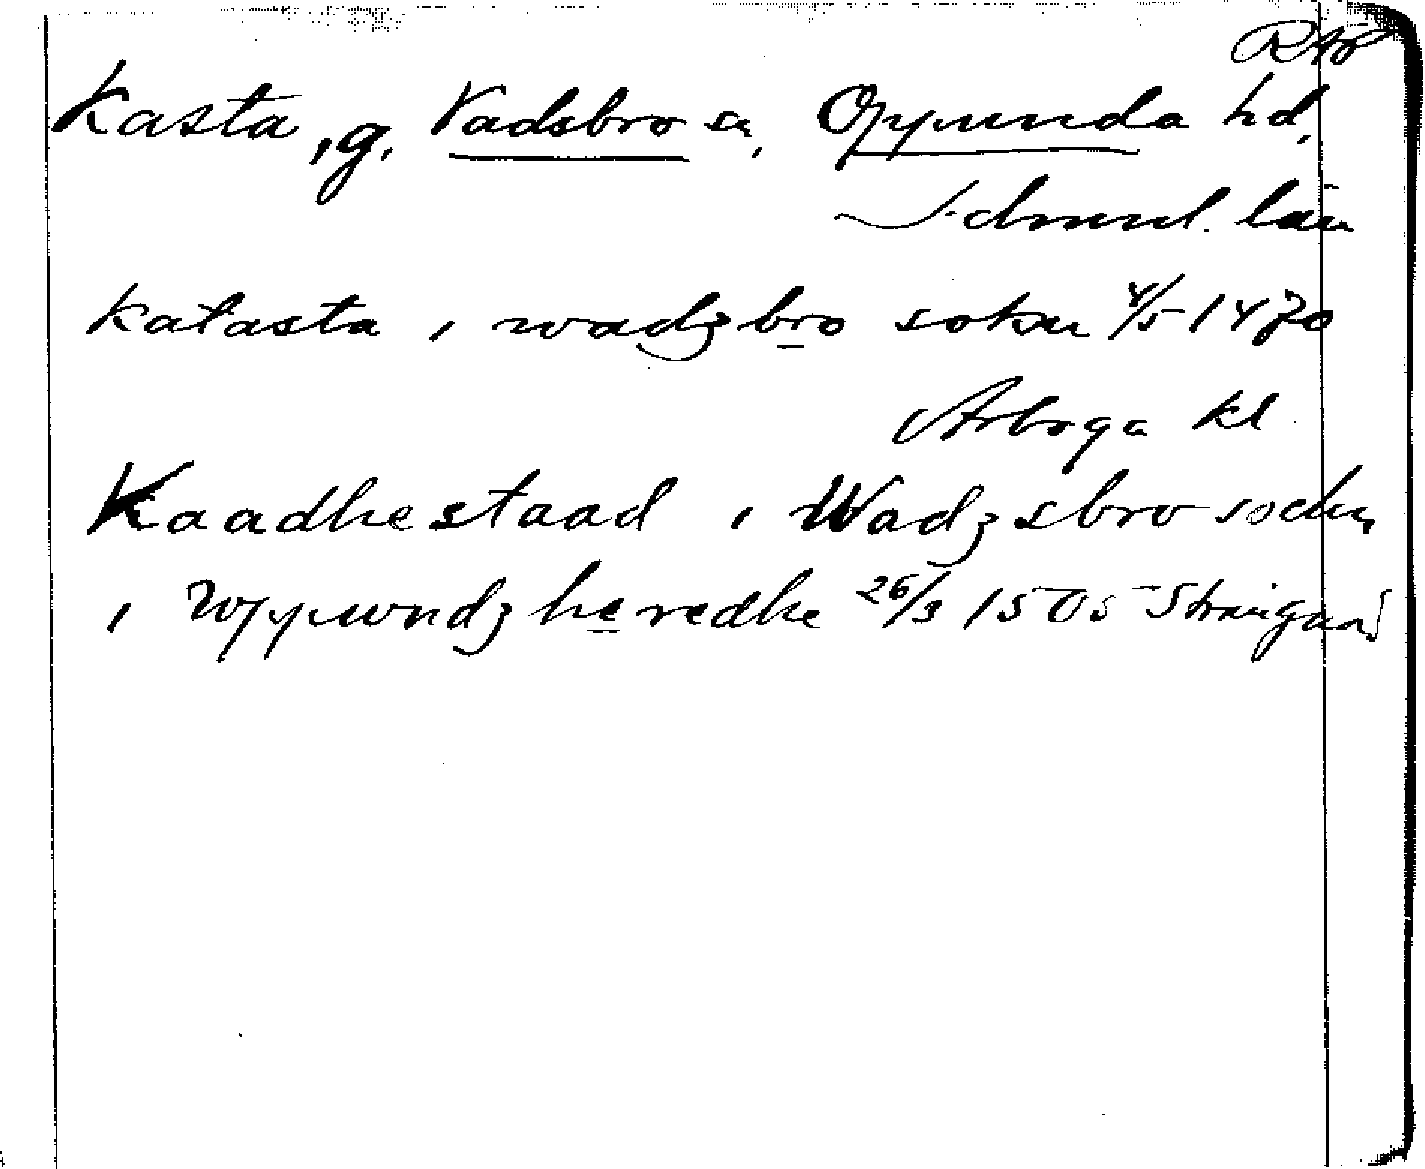 RAp
Kasta, g. Vadsbro sn, Oppunda hd,
Söderml. län
katasta i wadzbro sokn 4/5 1470
Arboga kl
Kaadhestaad i Wadzsbro sochn
i Wppwndz heredhe 26/3 1505 Strängnäs